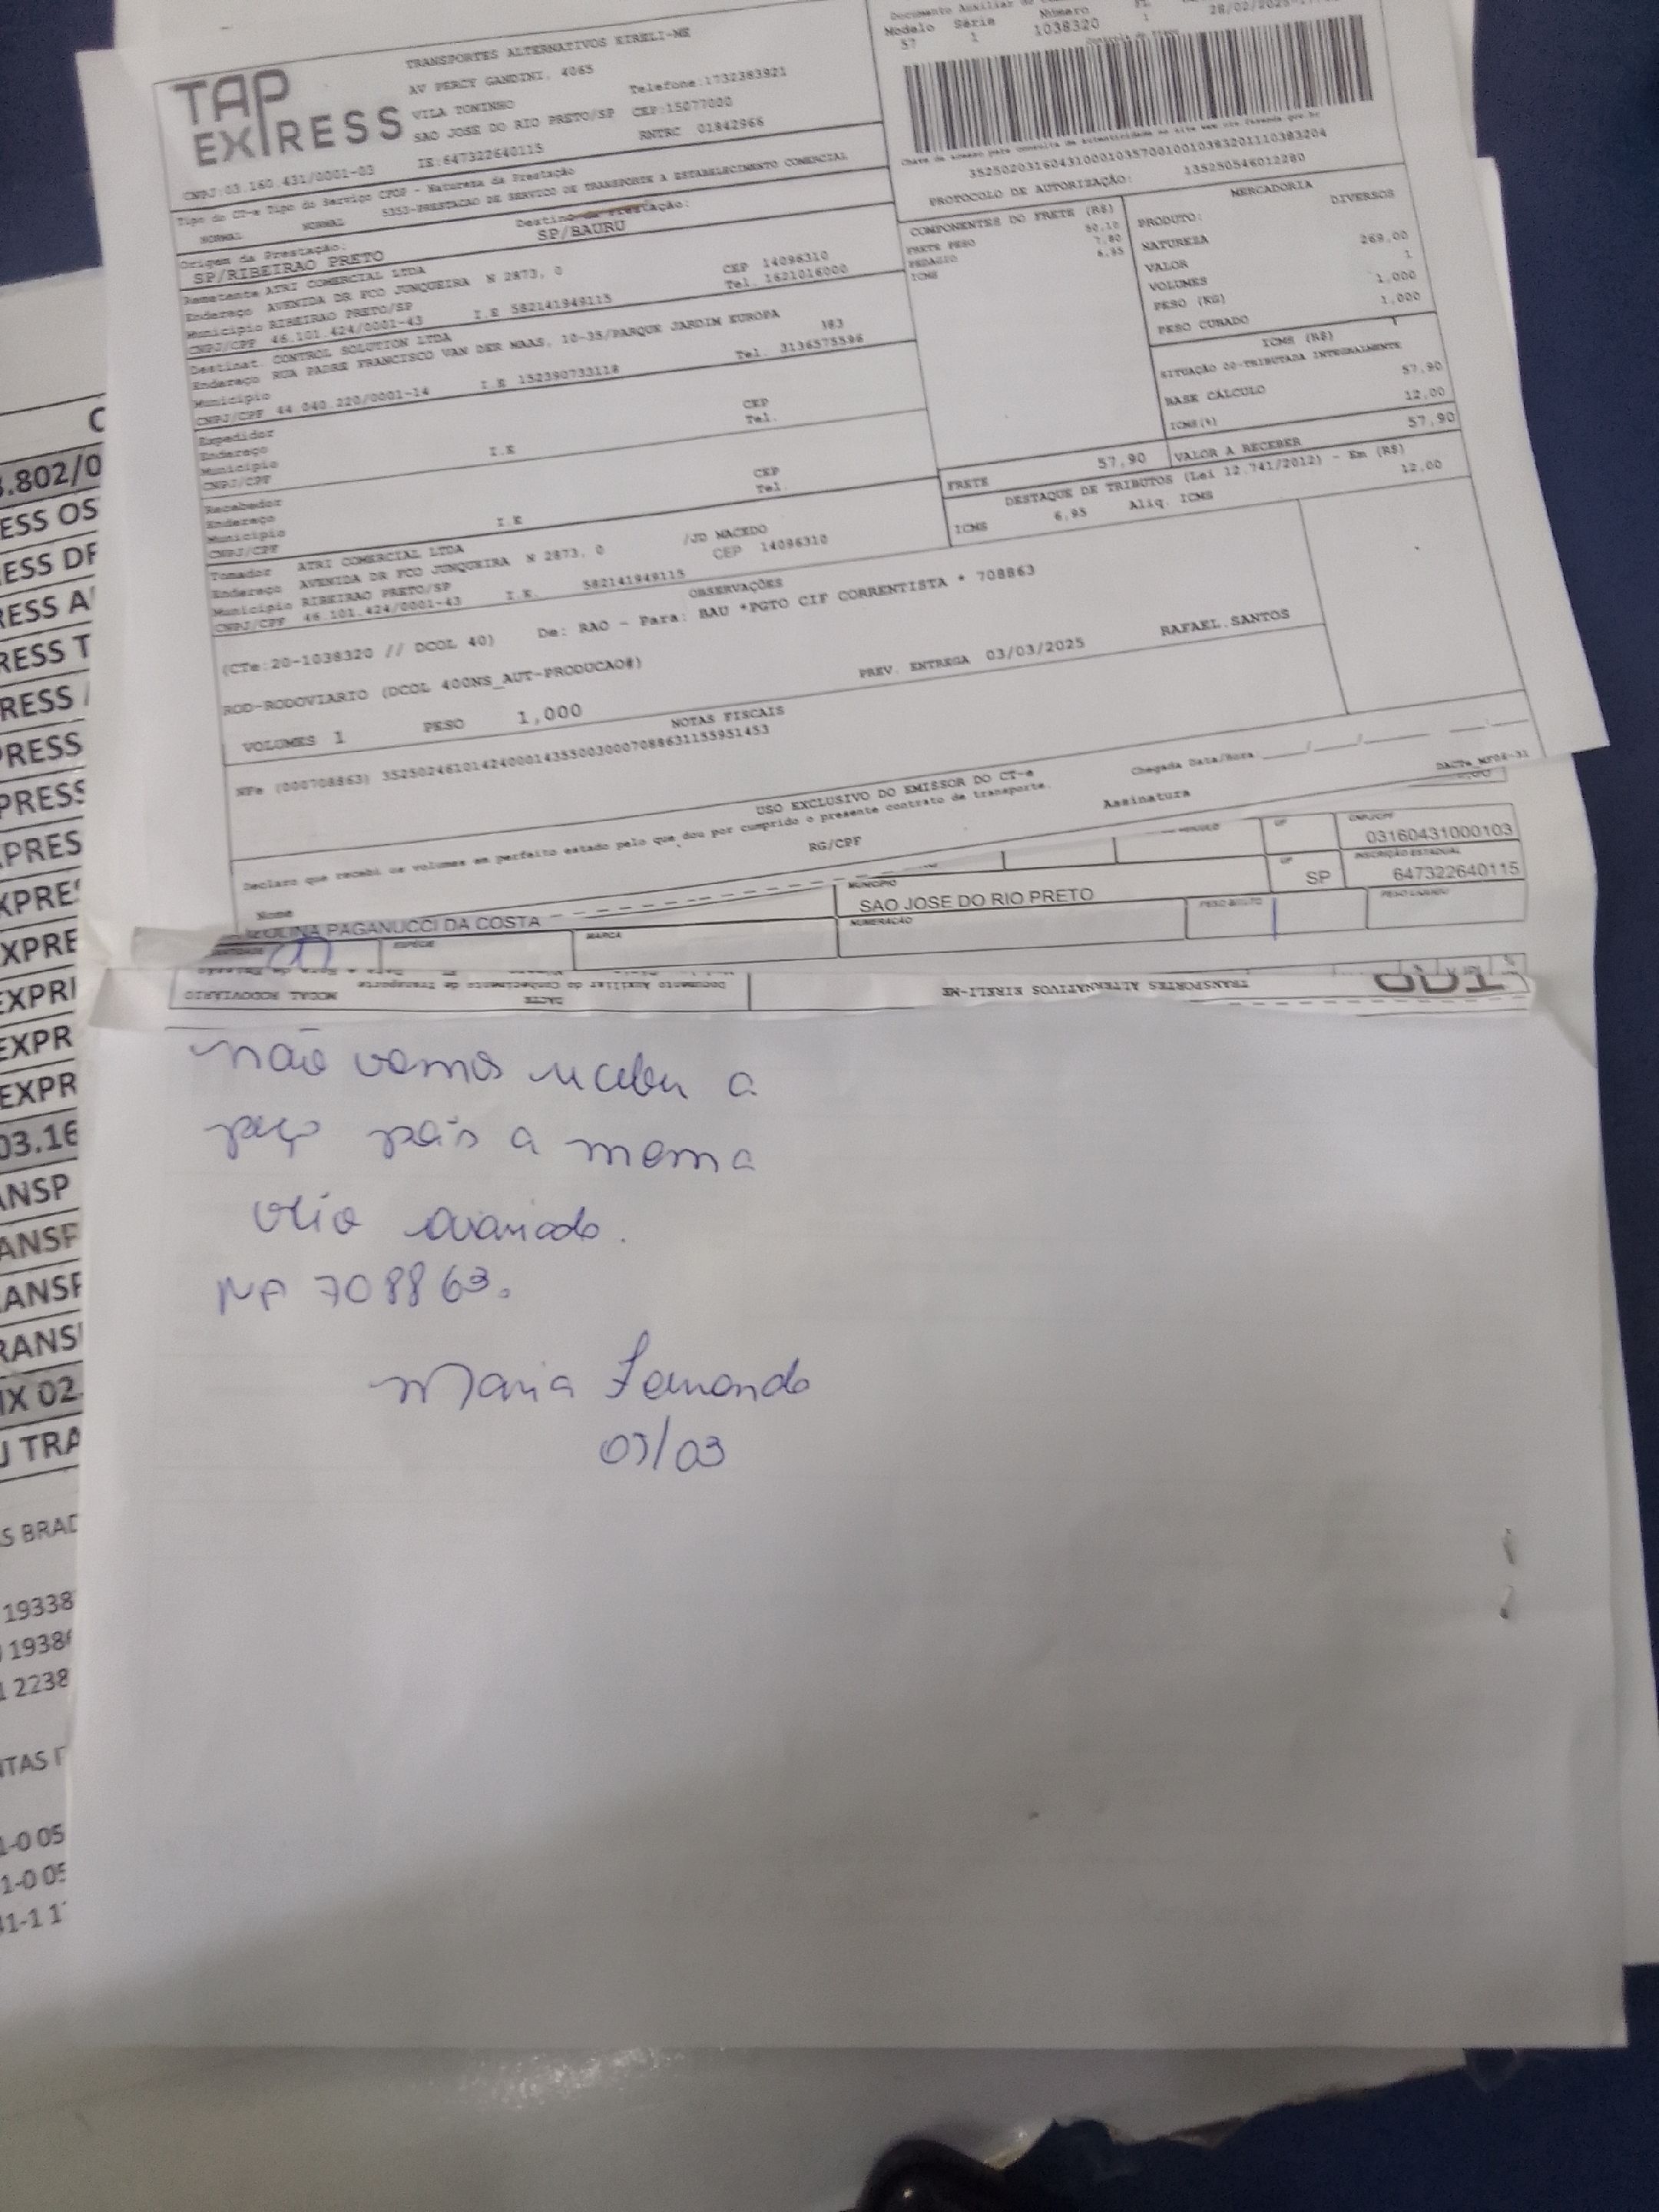 TAP EXPRESS
TRANSPORTES ALTERNATIVOS EIRELI-ME
AV PERCY GANDINI, 4065
VILA TONINHO Telefone:1732383921
SAO JOSE DO RIO PRETO/SP CEP:15077000
IE:647322640115 RNTRC 01842966
CNPJ:03.160.431/0001-03
Modelo Série Número
57 1 1038320 1
Chave de acesso para consulta de autenticidade no site www.cte.fazenda.gov.br
35250203160431000103570010010383201110383204
PROTOCOLO DE AUTORIZAÇÃO: 135250546012280
Tipo do CT-e Tipo do Serviço CFOP - Natureza da Prestação
NORMAL NORMAL 5353-PRESTACAO DE SERVICO DE TRANSPORTE A ESTABELECIMENTO COMERCIAL
Origem da Prestação: Destino da Prestação:
SP/RIBEIRAO PRETO SP/BAURU
Remetente ATRI COMERCIAL LTDA
Endereço AVENIDA DR FCO JUNQUEIRA N 2873, 0 CEP 14096310
Município RIBEIRAO PRETO/SP Tel. 1621016000
CNPJ/CPF 46.101.424/0001-43 I.E 582141949115
Destinat. CONTROL SOLUTION LTDA
Endereço RUA PADRE FRANCISCO VAN DER MAAS, 10-35/PARQUE JARDIM EUROPA
Município Tel. 3136575596
CNPJ/CPF 44.040.220/0001-14 I.E 152390733118
Expedidor
Endereço CEP
Município Tel.
CNPJ/CPF I.E
Recebedor
Endereço CEP
Município Tel.
CNPJ/CPF I.E
Tomador ATRI COMERCIAL LTDA
Endereço AVENIDA DR FCO JUNQUEIRA N 2873, 0 /JD MACEDO
Município RIBEIRAO PRETO/SP CEP 14096310
CNPJ/CPF 46.101.424/0001-43 I.E. 582141949115
COMPONENTES DO FRETE (R$)
FRETE PESO
PEDAGIO 7,80
ICMS 6,95
MERCADORIA
PRODUTO: DIVERSOS
NATUREZA
VALOR 269,00
VOLUMES 1
PESO (KG) 1,000
PESO CUBADO 1,000
ICMS (R$)
SITUAÇÃO 00-TRIBUTADA INTEGRALMENTE
BASE CÁLCULO 57,90
ICMS(%) 12,00
FRETE 57,90 VALOR A RECEBER 57,90
DESTAQUE DE TRIBUTOS (Lei 12.741/2012) - Em (R$)
ICMS 6,95 Aliq. ICMS 12,00
OBSERVAÇÕES
(CTe:20-1038320 // DCOL 40) De: RAO - Para: BAU *PGTO CIF CORRENTISTA * 708863
ROD-RODOVIARIO (DCOL 400NS_AUT-PRODUCAO#)
PREV. ENTREGA 03/03/2025 RAFAEL.SANTOS
VOLUMES 1 PESO 1,000
NOTAS FISCAIS
NFe (000708863) 35250246101424000143550030007088631155951453
USO EXCLUSIVO DO EMISSOR DO CT-e
Declaro que recebi os volumes em perfeito estado pelo que dou por cumprido o presente contrato de transporte.
Chegada Data/Hora ___/___/___ ___:___
Nome RG/CPF Assinatura
DACTe_MF06-31
CNPJ/CPF
03160431000103
PAGANUCCI DA COSTA
MUNICÍPIO
SAO JOSE DO RIO PRETO
UF
SP
INSCRIÇÃO ESTADUAL
647322640115
ESPÉCIE MARCA NUMERAÇÃO PESO BRUTO PESO LÍQUIDO
TRANSPORTES ALTERNATIVOS EIRELI-ME
DACTE
Documento Auxiliar do Conhecimento de Transporte
MODAL RODOVIÁRIO
não vamos receber a
peça pois a mesma
veio avariada.
NF 708863.
Maria Fernanda
03/03